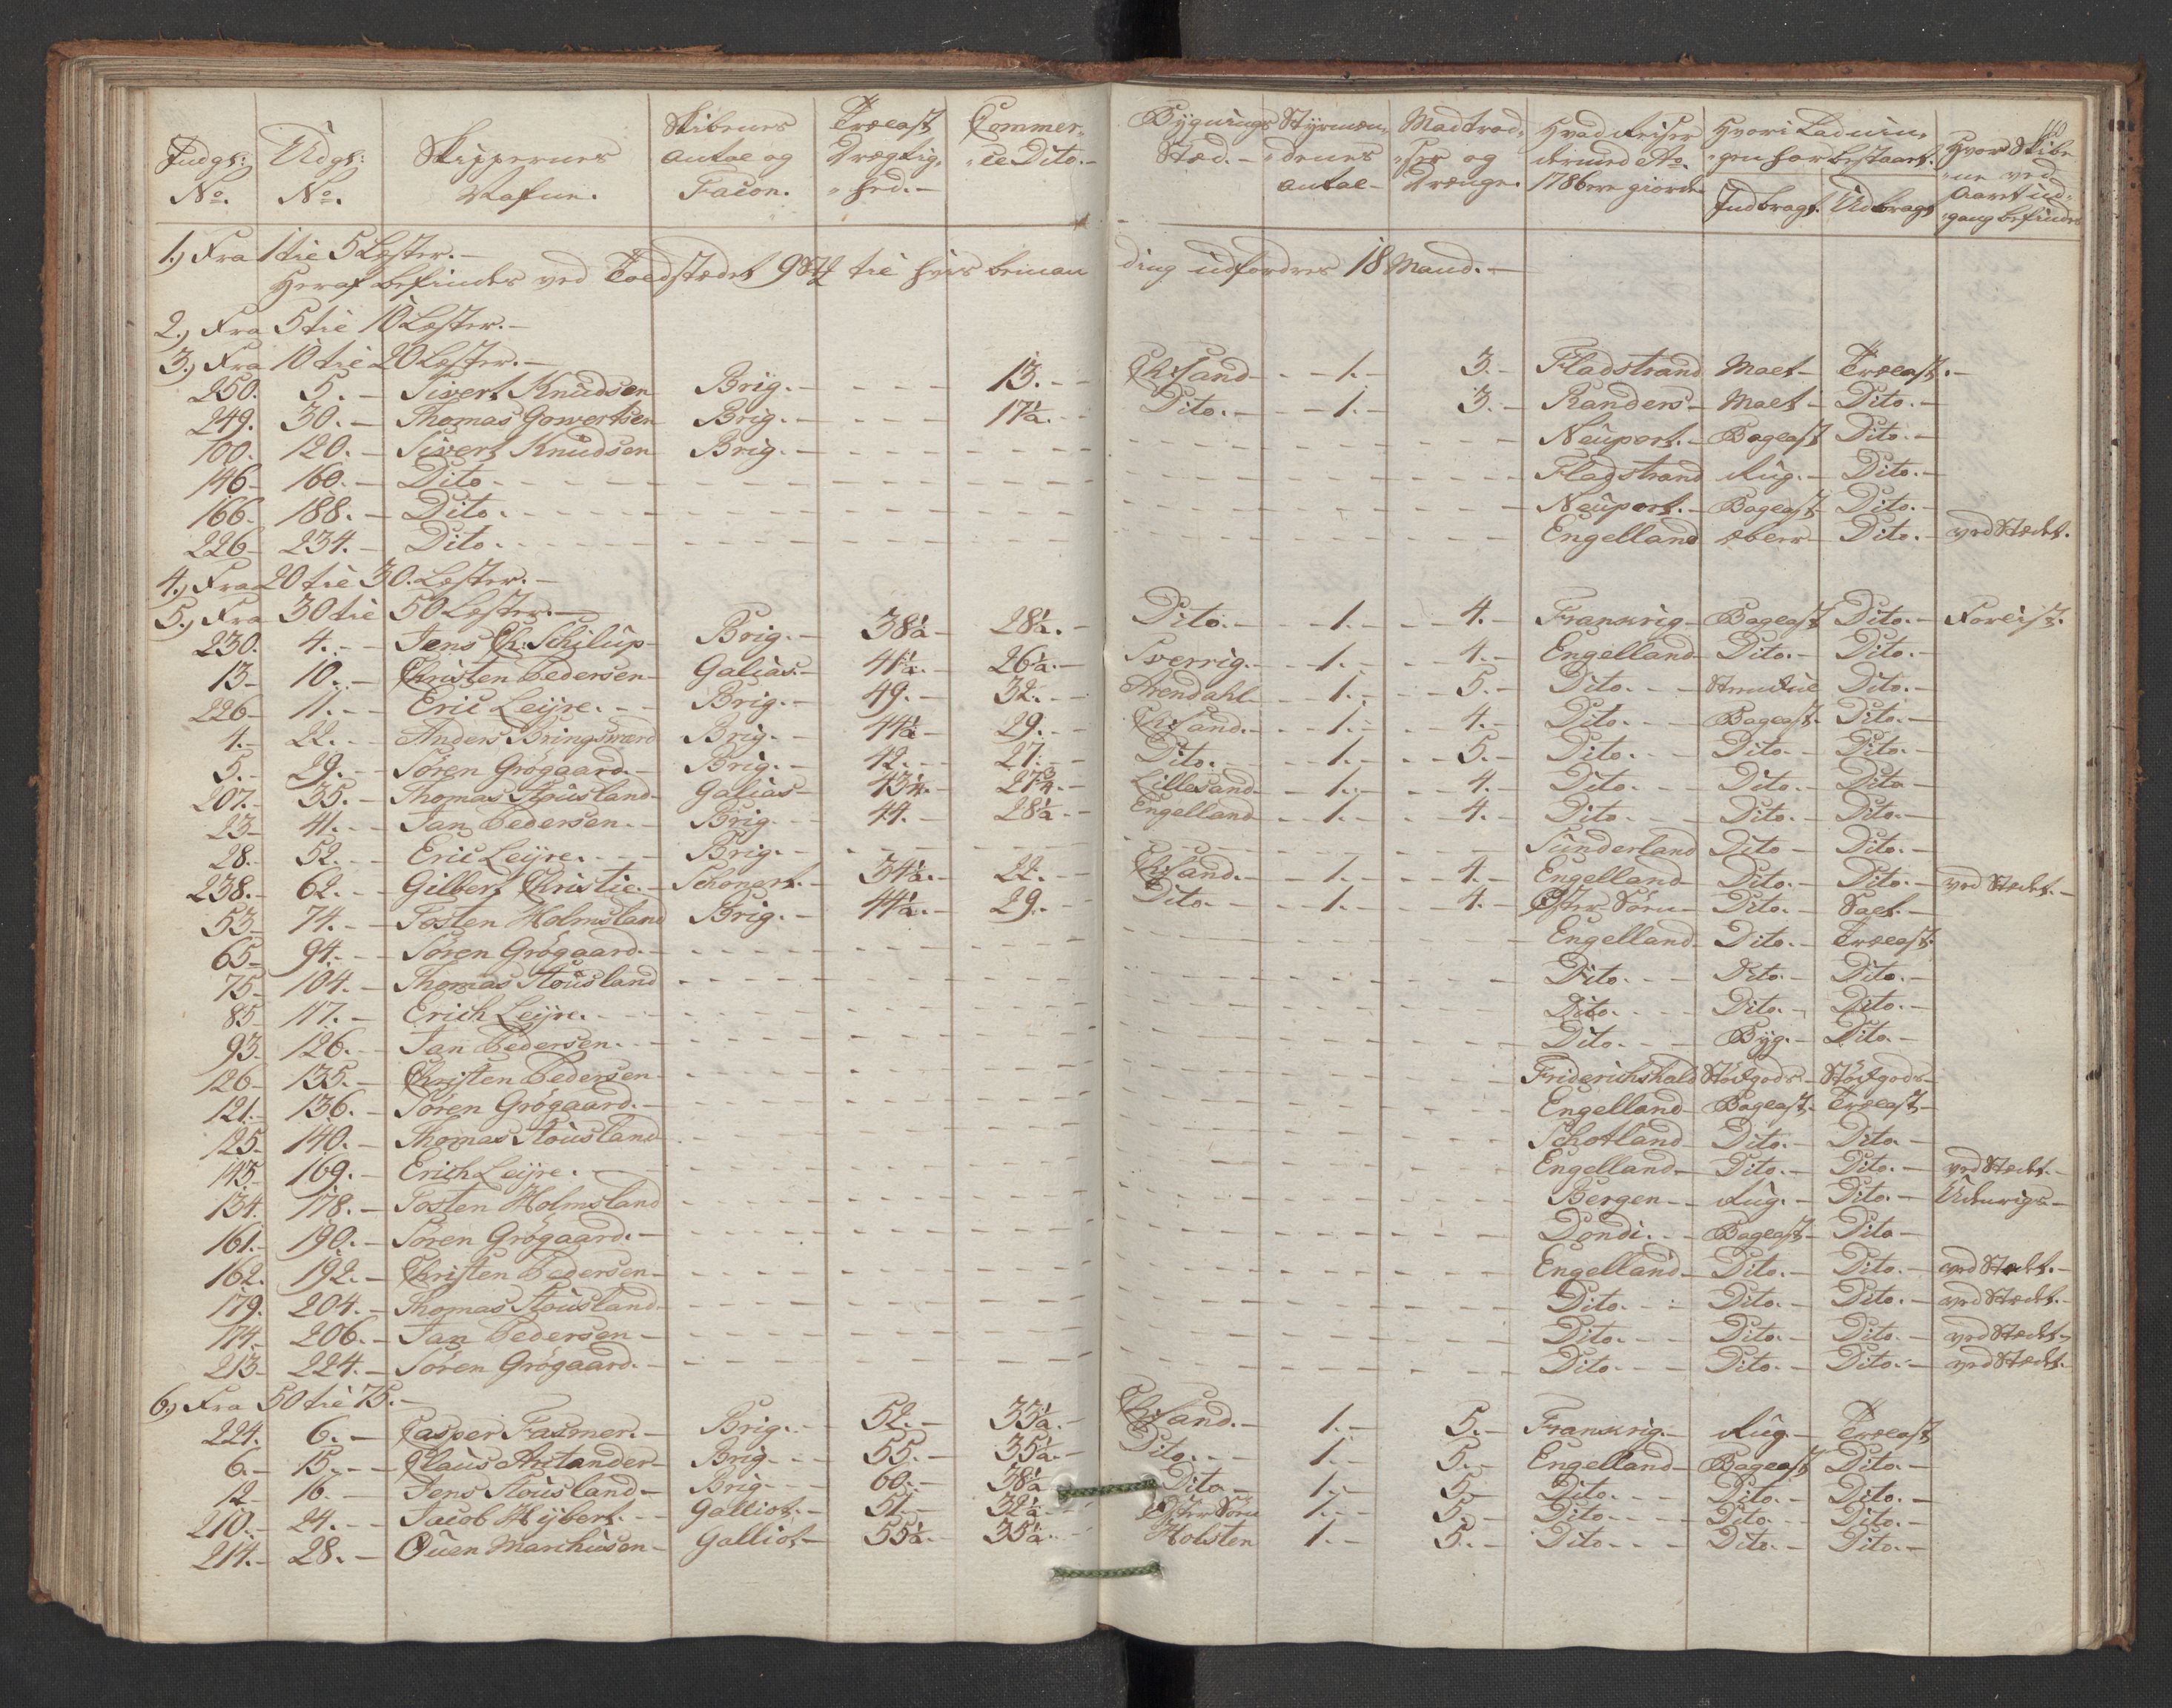 110
Indgl: No. | Udgl: No. | Skippernes Nafne. | Skibenes Antal og Facon. | Trælast Drægtighed.- | Commerce Dito.- | Bygnings Sted.- | Styrmændenes Antal- | Madtrodser og Drenge. | Hvad Reiser dermed Ao. 1786 ere giorde | Hvori Ladningen har bestaaet. Indbragt. Udbragt | Hvor Skibene ved Aaret udgang befindes
1.) Fra 1 til 5 Læster.-
Heraf befindes ved Toldstædet 9 St til hvis beman ding udfordres 18 Mand.-
2.) Fra 5 til 10 Læster.-
3.) Fra 10 til 20 Læster.-
250. 5.- Sivert Knudsen Brig.- 13.- Chr:Sand- 1.- 3.- Fladstrand Malt- Trælast.-
249. 30.- Thomas Gowertsen Brig.- 17½.- Dito.- 1.- 3.- Randers- Malt- Dito.-
100. 120.- Sivert Knudsen Brig.- Neuport.- Baglast Dito.-
146- 160.- Dito. Fladstrand Rug.- Dito.-
166. 188.- Dito. Neuport.- Baglast Dito.-
226- 234.- Dito. Engelland Dito.- ved Stædet.
4.) Fra 20 til 30. Læster.-
5.) Fra 30 til 50 Læster.-
230. 4.- Jens Chr: Schilup- Brig.- 38½- 28½.- Dito.- 1.- 4.- Frankrig- Baglast Dito.- Forlist.
13- 10.- Christen Pedersen- Galias.- 41½.- 26½.- Sverrig.- 1.- 4.- Engelland- Dito.- Dito.-
226- 11.- Eric Leijre.- Brig.- 49.- 32.- Arendahl- 1.- 5.- Dito.- Steenkul Dito.-
4.- 22.- Anders Bringsværd Brig.- 44½- 29.- Chr:Sand.- 1.- 4.- Dito.- Baglast.- Dito.-
5.- 29.- Søren Grøgaard.- Brig.- 42.- 27.- Dito.- 1.- 5.- Dito.- Dito.- Dito.-
207.- 35.- Thomas Stousland- Galias- 43¼.- 27¾.- Lillesand- 1.- 4.- Dito.- Dito.- Dito-
23- 41.- Jan Pedersen.- Brig.- 44.- 28½- Engelland- 1.- 4.- Dito.- Dito.- Dito.-
28.- 52.- Eric Leijre.- Brig.- Sunderland Dito- Dito.-
238.- 62.- Gilbert Christie.- Schonert.- 34½.- 22.- Chr:Sand.- 1.- 4.- Engelland- Dito.- Dito.- ved Stædet.-
53- 74.- Tosten Holmsland Brig.- 44½.- 29.- Dito.- 1.- 4.- Øster Søen- Dito.- Salt.-
65- 94.- Søren Grøgaard.- Engelland- Dito.- Trælast.
75- 104.- Thomas Stousland Dito.- Dito.- Dito.-
85- 117.- Erich Leijre.- Dito.- Dito.- Dito.-
93.- 126.- Jan Pedersen.- Dito.- Byg.- Dito-
126- 135.- Christen Pedersen- Friderichshald Stökgods- Stökgods-
121.- 136.- Søren Grøgaard.- Engelland- Baglast.- Trælast-
125- 140.- Thomas Stousland Schotland- Dito.- Dito-
143- 169.- Erich Leijre. Engelland- Dito.- Dito.- ved Stædet.-
134. 178.- Tosten Holmsland Bergen- Rug.- Dito.- Udenrigs-
161.- 190.- Søren Grøgaard.- Dondi.- Baglast- Dito-
162. 192.- Christen Pedersen- Engelland- Dito.- Dito.- ved Stædet.-
179. 204.- Thomas Stousland- Dito.- Dito.- Dito.- ved Stædet.-
174.- 206.- Jan Pedersen- Dito.- Dito.- Dito.- ved Stædet.-
213- 224.- Søren Grøgaard.- Dito.- Dito.- Dito.- ved Stædet.-
6.) Fra 50 til 75.-
224. 6.- Casper Fasmer.- Brig.- 52.- 33½.- Chr:Sand.- 1.- 5.- Frankrig.- Rug.- Trælast
6.- 15.- Claus Artander- Brig.- 55.- 35½.- Dito.- 1.- 5.- Engelland- Baglast Dito.-
12- 16.- Jens Stousland- Brig.- 60.- 38½ Dito.- 1.- 5.- Dito.- Dito.- Dito.-
210.- 24.- Jacob Hybert.- Galliot.- 51.- 32½.- Øster Søen 1.- 5.- Dito.- Dito.- Dito.-
214.- 28.- Ouen Marchusen- Galliot- 55½.- 35½.- Holsten 1.- 5.- Dito.- Dito.- Dito.-